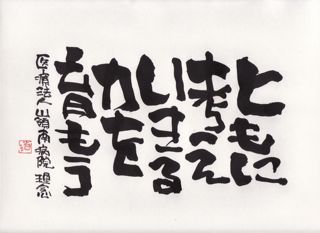 ともに
考え
いきる
力を
育もう
医療法人 山嶺南病院 理念